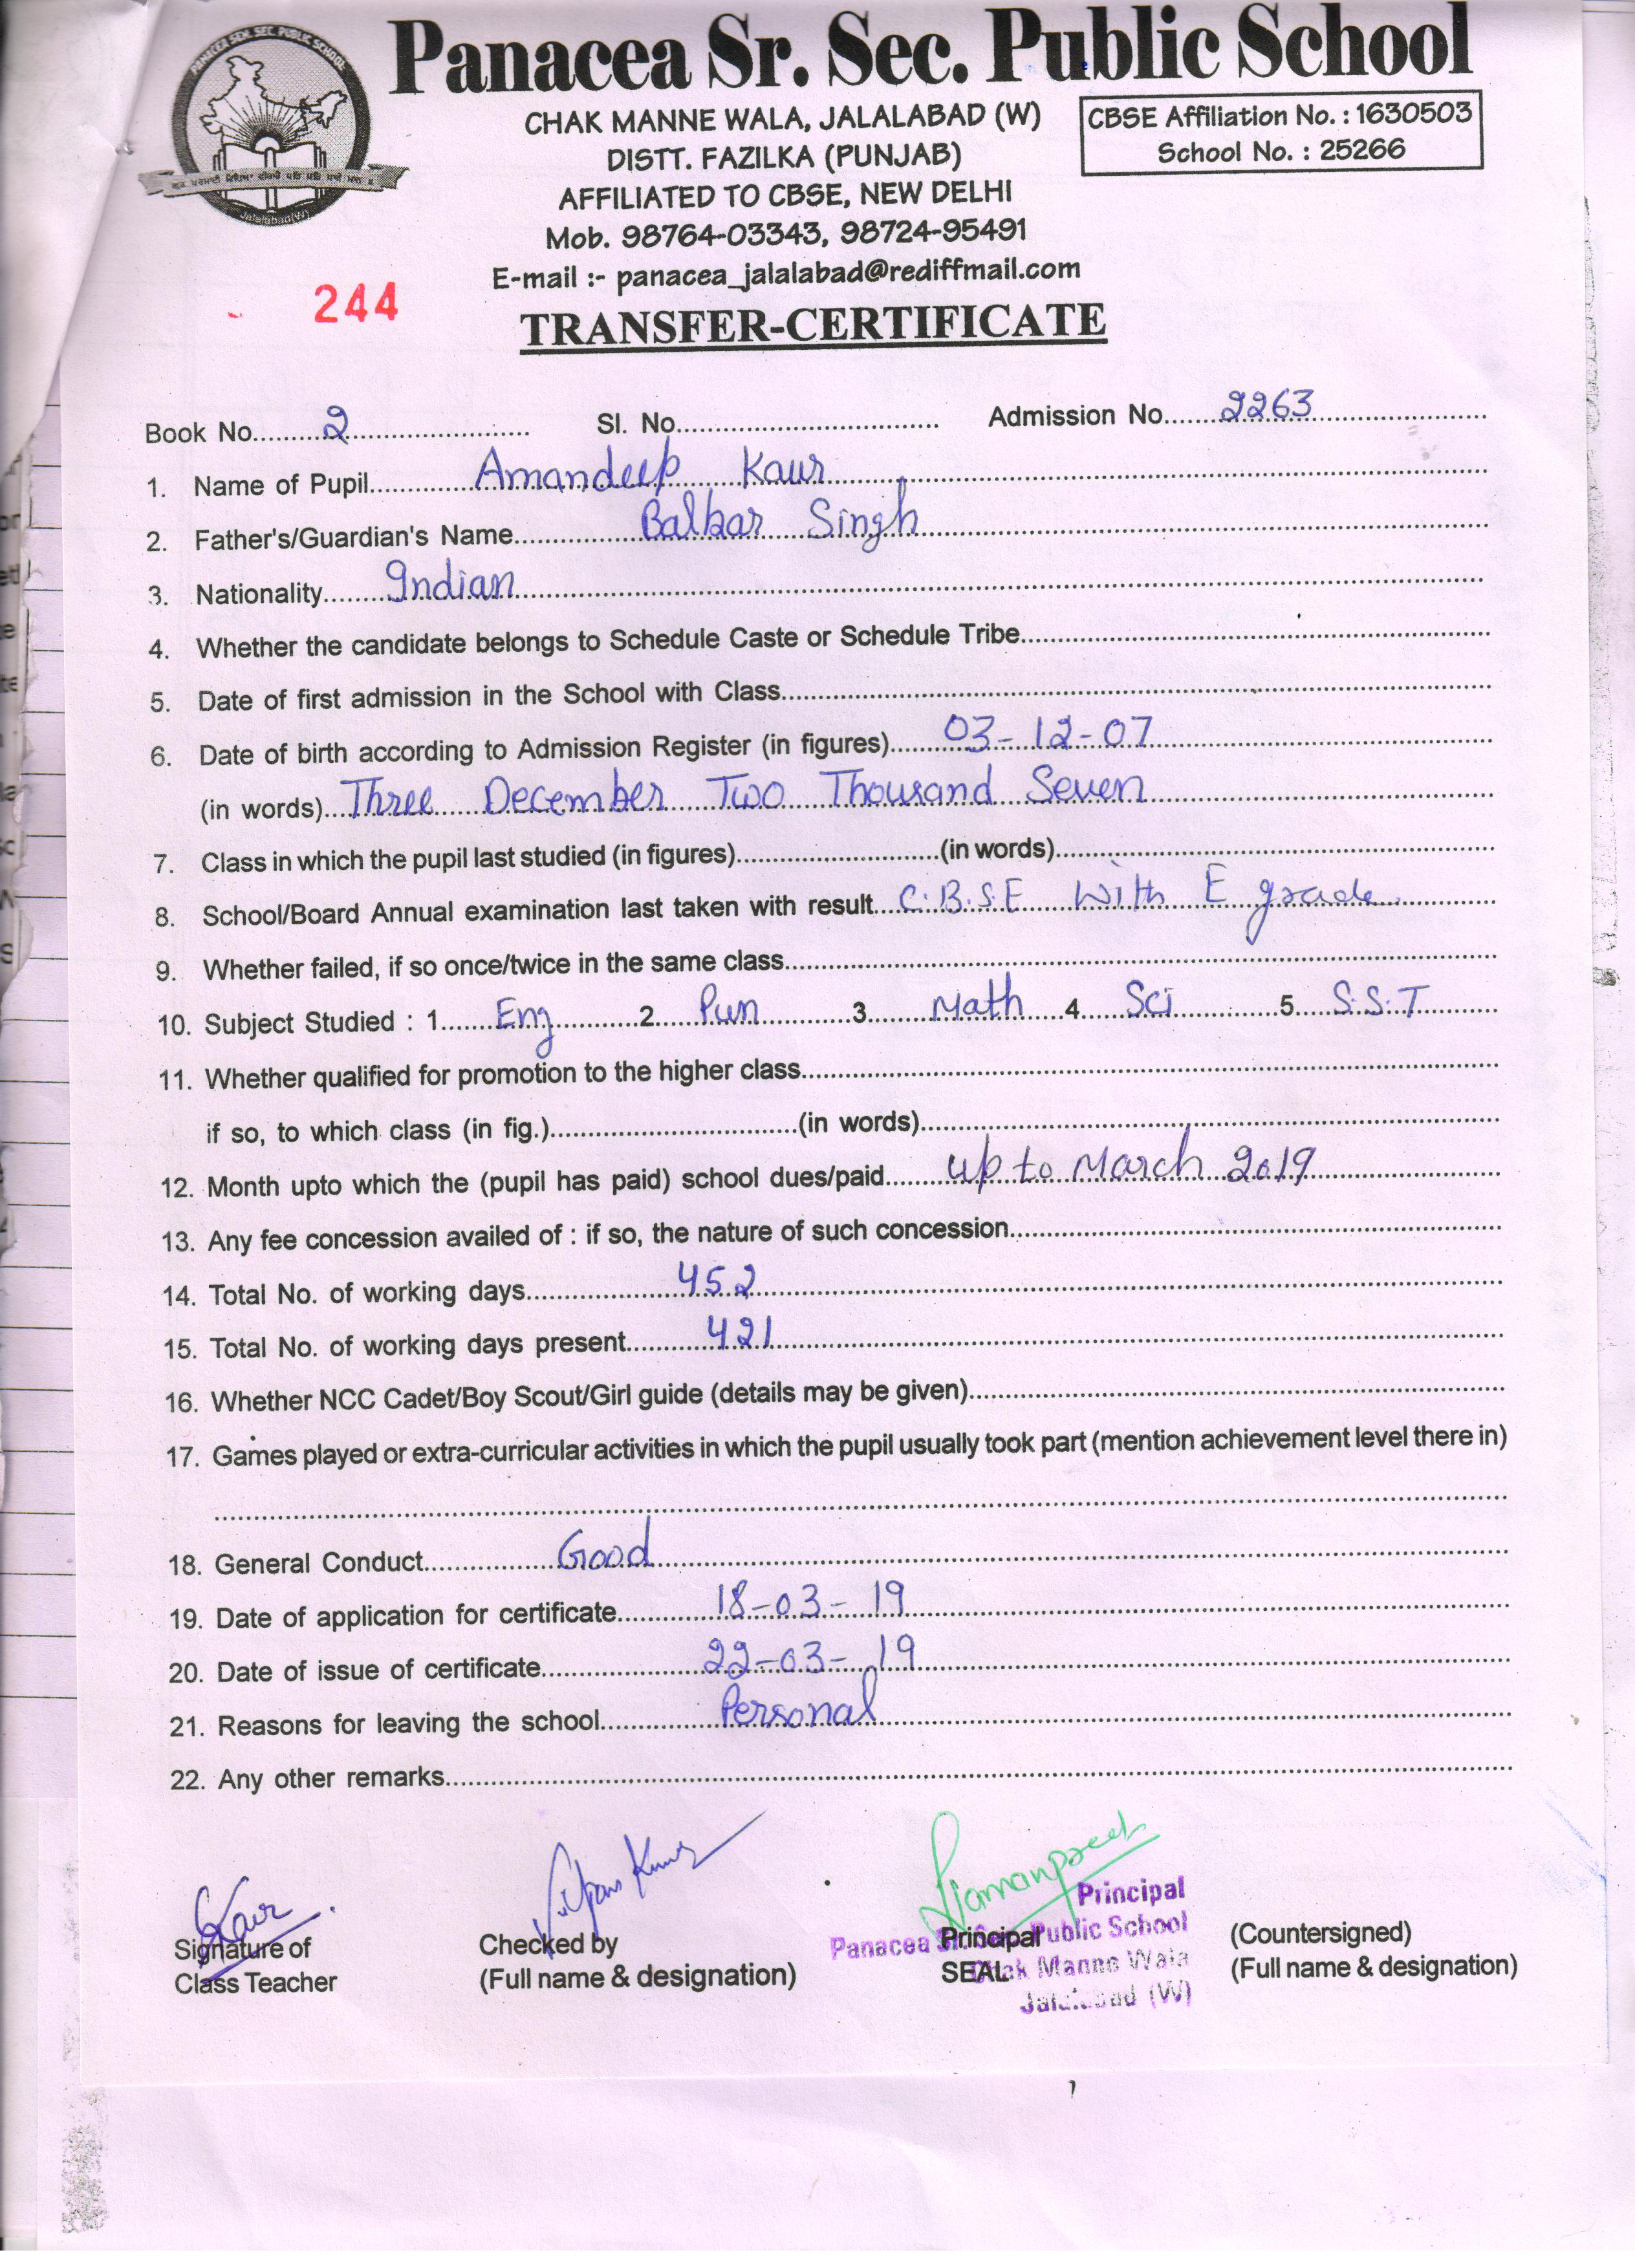 PANACEA SEN. SEC. PUBLIC SCHOOL
Jalalabad(W)
Panacea Sr. Sec. Public School
CHAK MANNE WALA, JALALABAD (W)
DISTT. FAZILKA (PUNJAB)
AFFILIATED TO CBSE, NEW DELHI
Mob. 98764-03343, 98724-95491
E-mail :- panacea_jalalabad@rediffmail.com
CBSE Affiliation No. : 1630503
School No. : 25266
244
TRANSFER-CERTIFICATE
Book No. 2 Sl. No. Admission No. 2263
1. Name of Pupil Amandeep Kaur
2. Father's/Guardian's Name Balkar Singh
3. Nationality Indian
4. Whether the candidate belongs to Schedule Caste or Schedule Tribe
5. Date of first admission in the School with Class
6. Date of birth according to Admission Register (in figures) 03-12-07
(in words) Three December Two Thousand Seven
7. Class in which the pupil last studied (in figures) (in words)
8. School/Board Annual examination last taken with result C.B.S.E With E grade
9. Whether failed, if so once/twice in the same class
10. Subject Studied : 1. Eng 2. Pun 3. Math 4. Sci 5. S.S.T
11. Whether qualified for promotion to the higher class
if so, to which class (in fig.) (in words)
12. Month upto which the (pupil has paid) school dues/paid up to March 2019
13. Any fee concession availed of : if so, the nature of such concession
14. Total No. of working days 452
15. Total No. of working days present 421
16. Whether NCC Cadet/Boy Scout/Girl guide (details may be given)
17. Games played or extra-curricular activities in which the pupil usually took part (mention achievement level there in)
18. General Conduct Good
19. Date of application for certificate 18-03-19
20. Date of issue of certificate 22-03-19
21. Reasons for leaving the school Personal
22. Any other remarks
Kaur
Signature of
Class Teacher
Checked by
(Full name & designation)
Principal
SEAL
Principal
Panacea Sr. Sec. Public School
Chak Manne Wala
Jalalabad (W)
(Countersigned)
(Full name & designation)